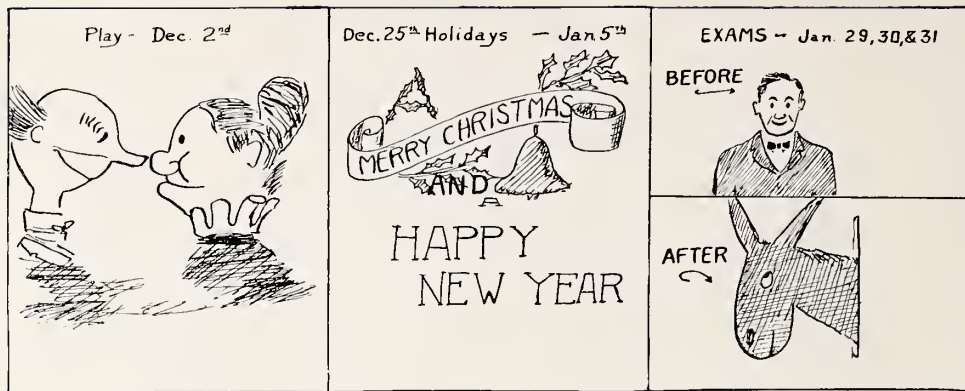 Play - Dec. 2nd
Dec. 25th Holidays - Jan 5th
MERRY CHRISTMAS
AND
HAPPY
NEW YEAR
EXAMS - Jan. 29, 30, & 31
BEFORE
AFTER